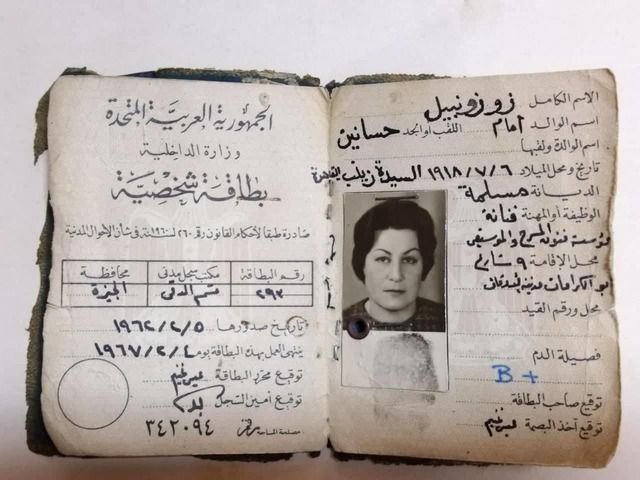 الجمهورية العربية المتحدة
وزارة الداخلية
بطاقة شخصية
صادرة طبقا لأحكام القانون رقم ٢٦٠ لسنة ١٩٦٠ في شأن الأحوال المدنية
رقم البطاقة مكتب سجل مدني محافظة
٢٩٣ قسم الدقي الجيزة
تاريخ صدورها ١٩٦٢/٢/٥
ينتهي العمل بهذه البطاقة يوم ١٩٦٧/٢/٤
توقيع محرر البطاقة
توقيع أمين السجل
٣٤٢٠٩٤
مصلحة المساحة
الاسم الكامل زوزو نبيل
اسم الوالد إمام اللقب أو الجد حسانين
اسم الوالدة ولقبها
تاريخ ومحل الميلاد ١٩١٨/٧/٦ السيدة زينب القاهرة
الديانة مسلمة
الوظيفة أو المهنة فنانة
مؤسسة فنون المسرح والموسيقى
محل الإقامة ٩ شارع
أبو الكرامات مدينة
محل ورقم القيد
فصيلة الدم
B +
توقيع صاحب البطاقة
توقيع آخذ البصمة